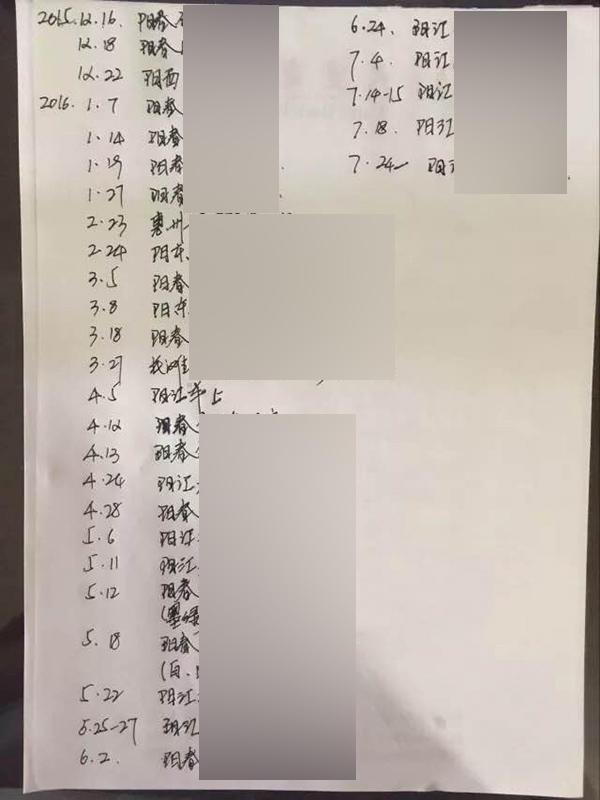 2015.12.16. 阳春
12.18 阳春
12.22 阳西
2016. 1.7 阳春
1.14 阳春
1.19 阳春
1.27 阳春
2.23 惠州
2.24 阳东
3.5 阳春
3.8 阳东
3.18 阳春
3.27
4.5 阳江车上
4.12 阳春
4.13 阳春
4.24 阳江
4.28 阳春
5.6 阳江
5.11 阳江
5.12 阳春
(墨绿
5.18 阳春
(白、
5.22 阳江
5.25-27 阳江
6.2. 阳春
6.24. 阳江
7.4. 阳江
7.14-15 阳江
7.18. 阳江
7.24- 阳江